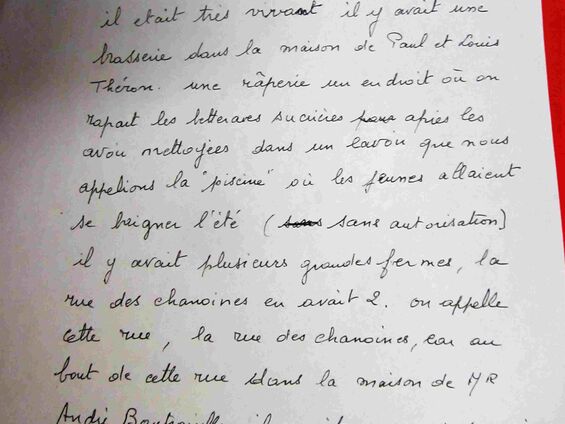 il etait très vivant il y avait une
brasserie dans la maison de Paul et Louis
Théron. une râperie un endroit où on
rapait les betteraves sucrières après les
avoir nettoyées dans un lavoir que nous
appelions la "piscine" où les jeunes allaient
se baigner l'été ( sans sans autorisation)
il y avait plusieurs grandes fermes, la
rue des chanoines en avait 2. on appelle
cette rue, la rue des chanoines, car au
bout de cette rue dans la maison de MR
André